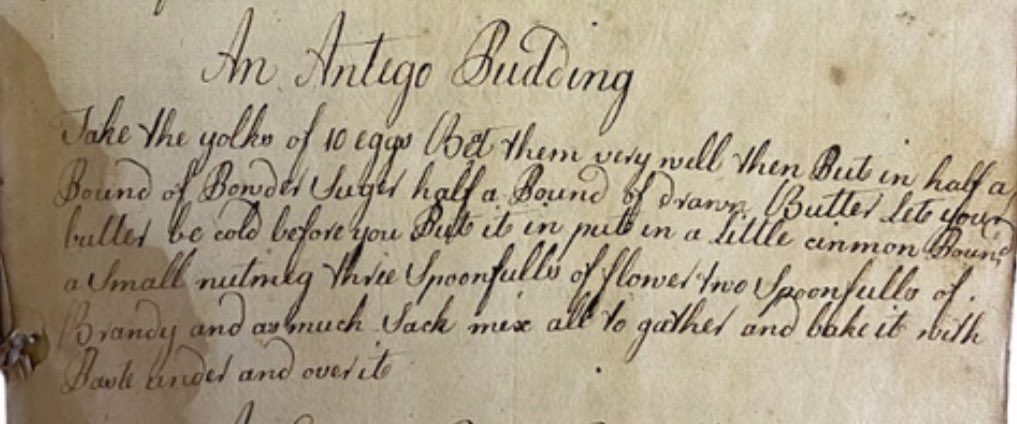 An Antego Pudding
Take the yolks of 10 eggs Bet them very well then Put in half a
Pound of Powder Suger half a Pound of drawn Butter lets your
butter be cold before you Put it in put in a little cinmon Pound
a Small nutmeg three Spoonfulls of flower two Spoonfulls of
Brandy and as much Sack mix all to gather and bake it with
Paste under and over it